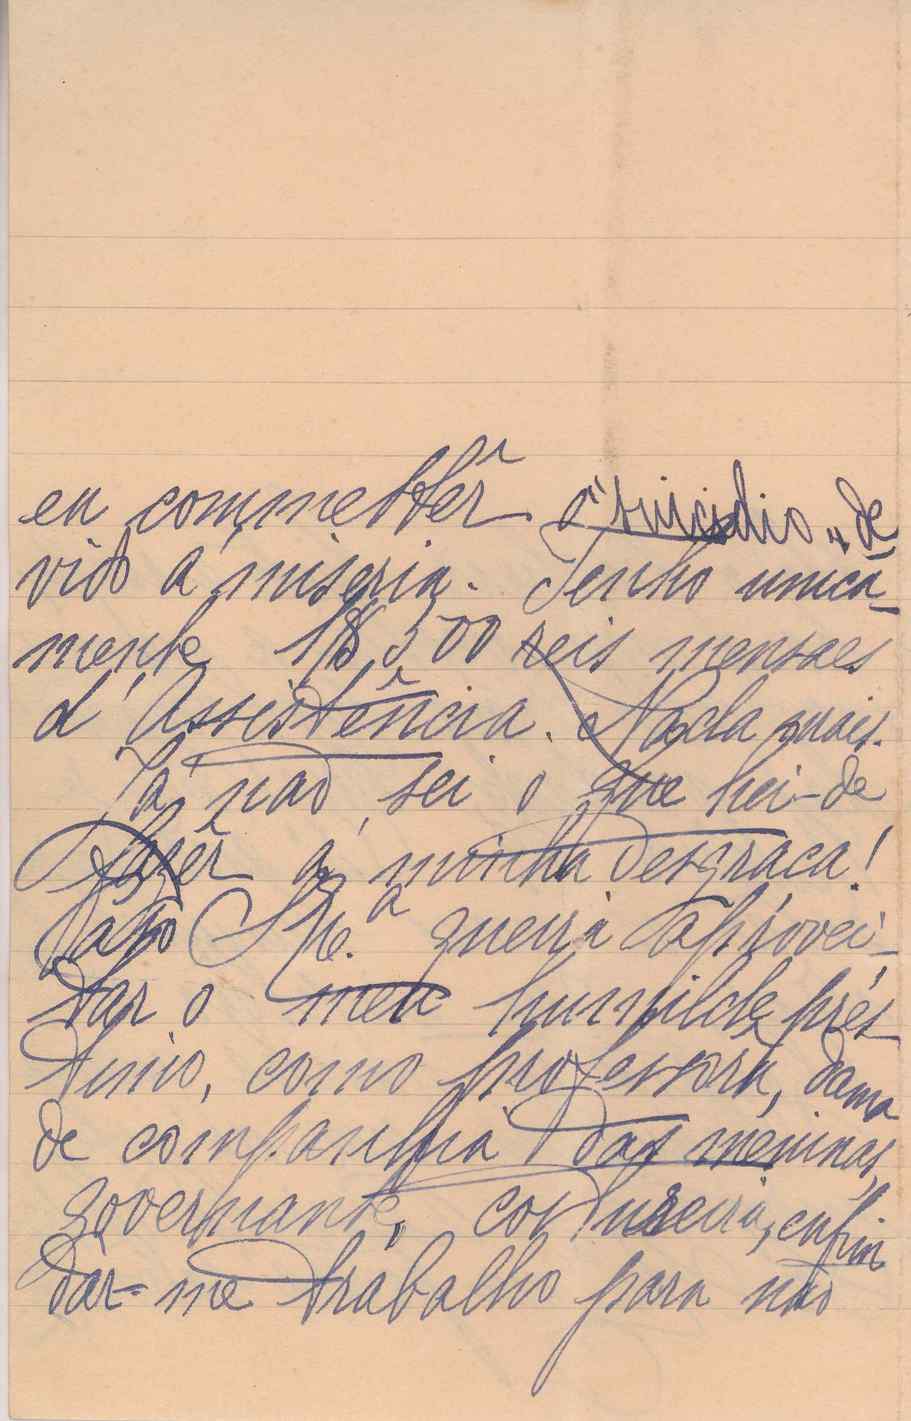 eu commettêr o "suicidio„ de
vido a' miseria. Tenho unica-
mente 1$500 reis mensaes
d'Assistência. Nada mais.
Já não sei o que hei-de
fazêr a' minha desgraça!
V. Ex.ª queira aprovei-
tar o meu humilde prés
timo, como professora, dama
de companhia das meninas,
governante, costureira, enfim
dar-me trabalho para não